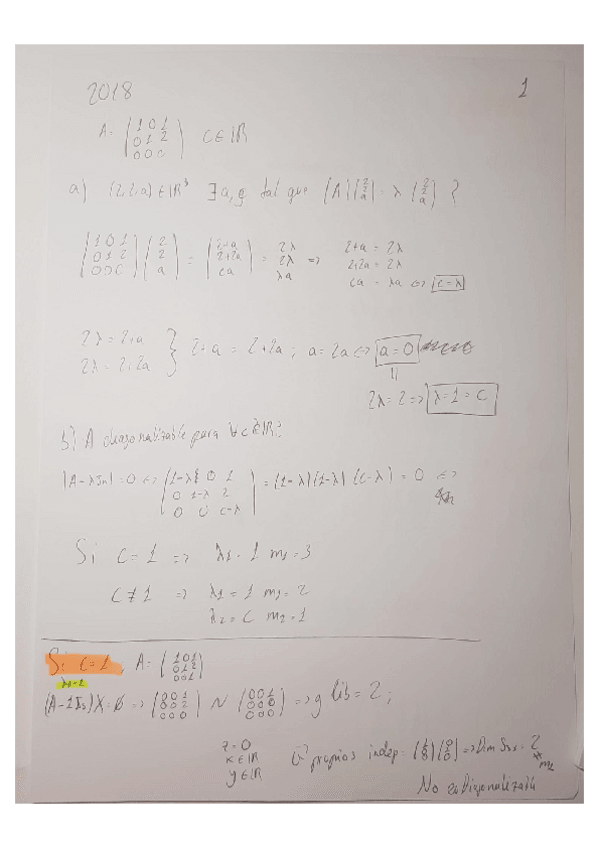 2018
1
A = (1 0 1
0 1 2
0 0 c) c ∈ ℝ
a) (2,2,a) ∈ ℝ³ ∃ a, c tal que (A)(2 2 a) = λ (2 2 a) ?
(1 0 1
0 1 2
0 0 c) (2 2 a) = (2+a
2+2a
ca) = 2λ
2λ
λa ⇒ 2+a = 2λ
2+2a = 2λ
ca = λa ⇔ c = λ
2λ = 2+a
2λ = 2+2a } 2+a = 2+2a ; a = 2a ⇔ a = 0
2λ = 2 ⇒ λ = 1 = c
b) A diagonalizable para ∀ c ∈ ℝ?
|A - λIn| = 0 ⇔ (1-λ 0 1
0 1-λ 2
0 0 c-λ) = (1-λ)(1-λ)(c-λ) = 0 ⇔
Si c = 1 ⇒ λ1 = 1 m1 = 3
c ≠ 1 ⇒ λ1 = 1 m1 = 2
λ2 = c m2 = 1
Si c = 1, A = (1 0 1
0 1 2
0 0 1)
λ1 = 1
(A - 1I3)X = 0 ⇒ (0 0 1
0 0 2
0 0 0) ~ (0 0 1
0 0 0
0 0 0) ⇒ g lib = 2;
z = 0
x ∈ ℝ
y ∈ ℝ
propios indep: (1 0 0) (0 1 0) ⇒ Dim = 2
≠
No es Diagonalizable